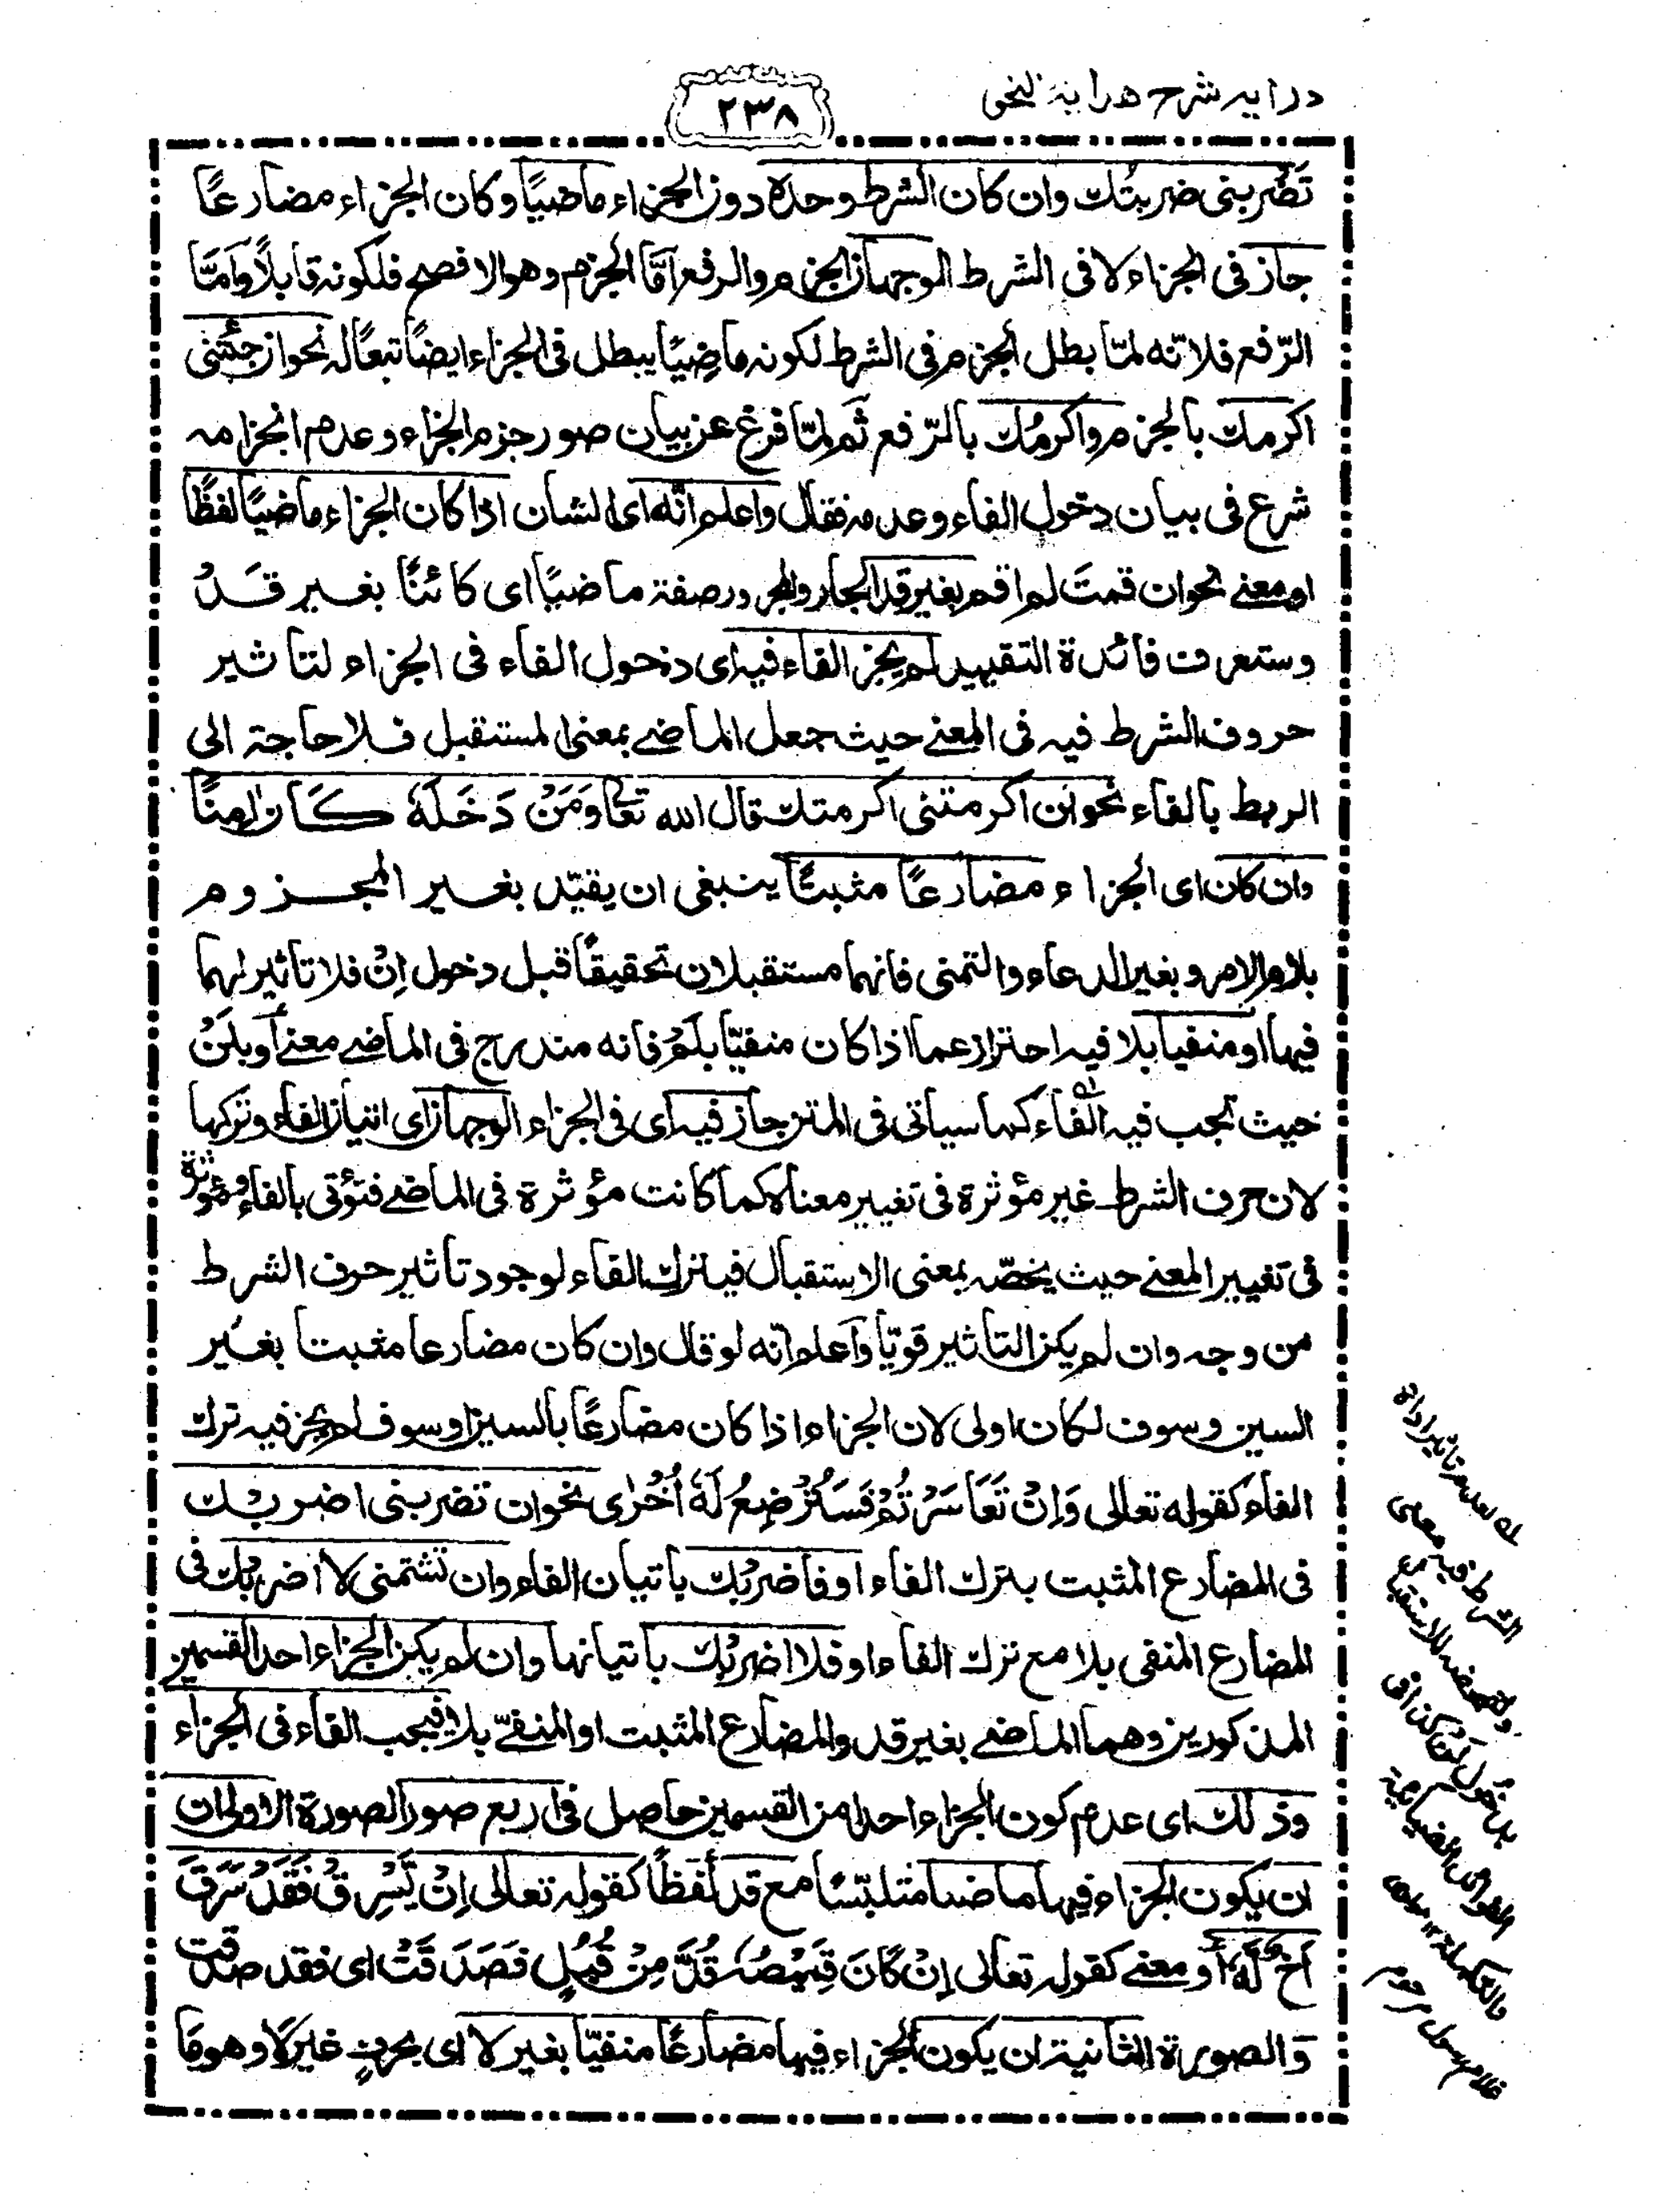 درايه شرح هداية النحو
٢٣٨
تَضْربنى ضربتُك وان كان الشرط وحدة دون الجزاء ماضيًا وكان الجزاء مضارعًا
جاز فى الجزاء لا فى الشرط الوجهان الجزم والرفع امّا الجزم وهو الافصح فلكونه قابلًا وامّا
الرّفع فلانّه لمّا بطل الجزم فى الشرط لكونه ماضِيًا يبطل فى الجزاء ايضًا تبعًا له نحو ان جئتنى
اكرمك بالجزم واكرمُك بالرّفع ثم لمّا فرغ عن بيان صور جزم الجزاء وعدم انجزامه
شرع فى بيان دخول الفاء وعدمه فقال واعلم انّه اى الشان اذا كان الجزاء ماضيًا لفظًا
او معنے نحو ان قمتَ لم اقم بغير قد الجار والمجرور صفة ماضيًا اى كائنًا بغير قَدْ
وستعرف فائدة التقييد لم يجز الفاء فيه اى دخول الفاء فى الجزاء لتاثير
حروف الشرط فيه فى المعنے حيث جعل الماضے بمعنى المستقبل فلا حاجة الى
الربط بالفاء نحو ان اكرمتنى اكرمتك قال الله تعالى وَمَنْ دَخَلَهٗ كَانَ اٰمِنًا
وان كان اى الجزاء مضارعًا مثبتًا ينبغى ان يقيّد بغير المجزوم
بلام الامر وبغير الدعاء والتمنى فانهما مستقبلان تحقيقًا قبل دخول اِنْ فلا تاثير لهما
فيها او منفيا بلا فيه احتراز عما اذا كان منفيّا بلَمْ فانه مندرج فى الماضے معنے أو بلَنْ
حيث تجب فيه الفاء كما سياتى فى المتن جاز فيه اى فى الجزاء الوجهان اى اتيان الفاء وتركها
لان حرف الشرط غير مؤثرة فى تغيير معناه كما كانت مؤثرة فى الماضے فتؤتى بالفاء ومؤثرة
فى تغيير المعنے حيث يخصّه بمعنى الاستقبال فيترك الفاء لوجود تاثير حرف الشرط
من وجه وان لم يكن التاثير قويّا وٱعلم انّه لو قال وان كان مضارعا مثبتا بغير
السين وسوف لكان اولى لان الجزاء اذا كان مضارعًا بالسين او سوف لم يجز فيه ترك
الفاء كقوله تعالى وَاِنْ تَعَاسَرْتُمْ فَسَتُرْضِعُ لَهٗ اُخْرٰى نحو ان تضربنى اضربك
فى المضارع المثبت بترك الفاء او فاضربُك باتيان الفاء وان تشتمنى لا اضربك فى
المضارع المنفى بلا مع ترك الفاء او فلا اضربُك باتيانها وان لم يكن الجزاء احد القسمين
المذكورين وهما الماضے بغير قد والمضارع المثبت او المنفےّ بلا فيجب الفاء فى الجزاء
وذلك اى عدم كون الجزاء احدا من القسمين حاصل فى اربع صور الصورة الاولى ان
ان يكون الجزاء فيها ماضيا متلبّسًا مع قد لفظًا كقوله تعالى اِنْ يَّسْرِقْ فَقَدْ سَرَقَ
اَخٌ لَّهٗ أو معنے كقوله تعالى اِنْ كَانَ قَمِيْصُهٗ قُدَّ مِنْ قُبُلٍ فَصَدَقَتْ اى فقد صدقت
وَالصورة الثانية ان يكون الجزاء فيها مضارعًا منفيّا بغير لا اى بحرفٍ غير لَا وهو ما